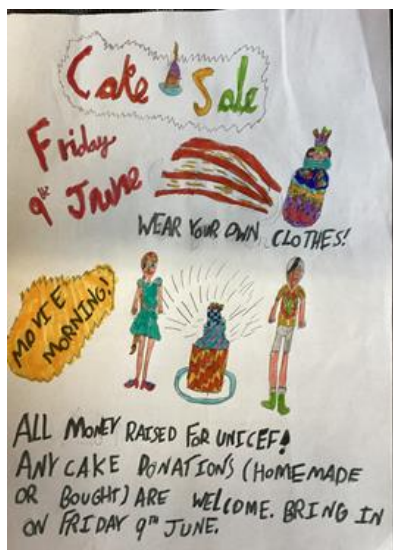 Cake Sale
Friday
9th June
WEAR YOUR OWN CLOTHES!
MOVIE
MORNING!
ALL MONEY RAISED FOR UNICEF!
ANY CAKE DONATIONS (HOMEMADE
OR BOUGHT) ARE WELCOME. BRING IN
ON FRIDAY 9TH JUNE.